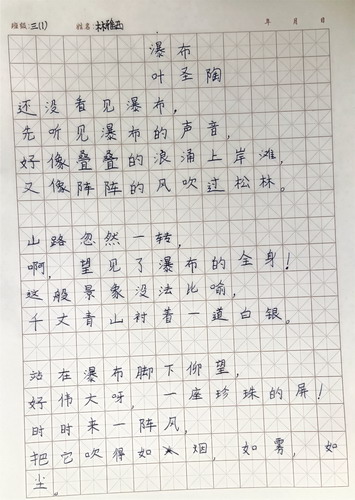 班级 三(1) 姓名 林雅西 年 月 日
瀑布
叶圣陶
还没看见瀑布,
先听见瀑布的声音,
好像叠叠的浪涌上岸滩,
又像阵阵的风吹过松林。
山路忽然一转,
啊, 望见了瀑布的全身!
这般景象没法比喻,
千丈青山衬着一道白银。
站在瀑布脚下仰望,
好伟大呀, 一座珍珠的屏!
时时来一阵风,
把它吹得如烟, 如雾, 如
尘。